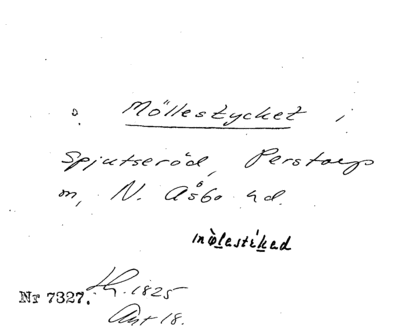 Möllestycket i
Spjutseröd, Perstorps
N. Åsbo hd.
mòlestiked
Nr 7327. 1825
Akt 18.